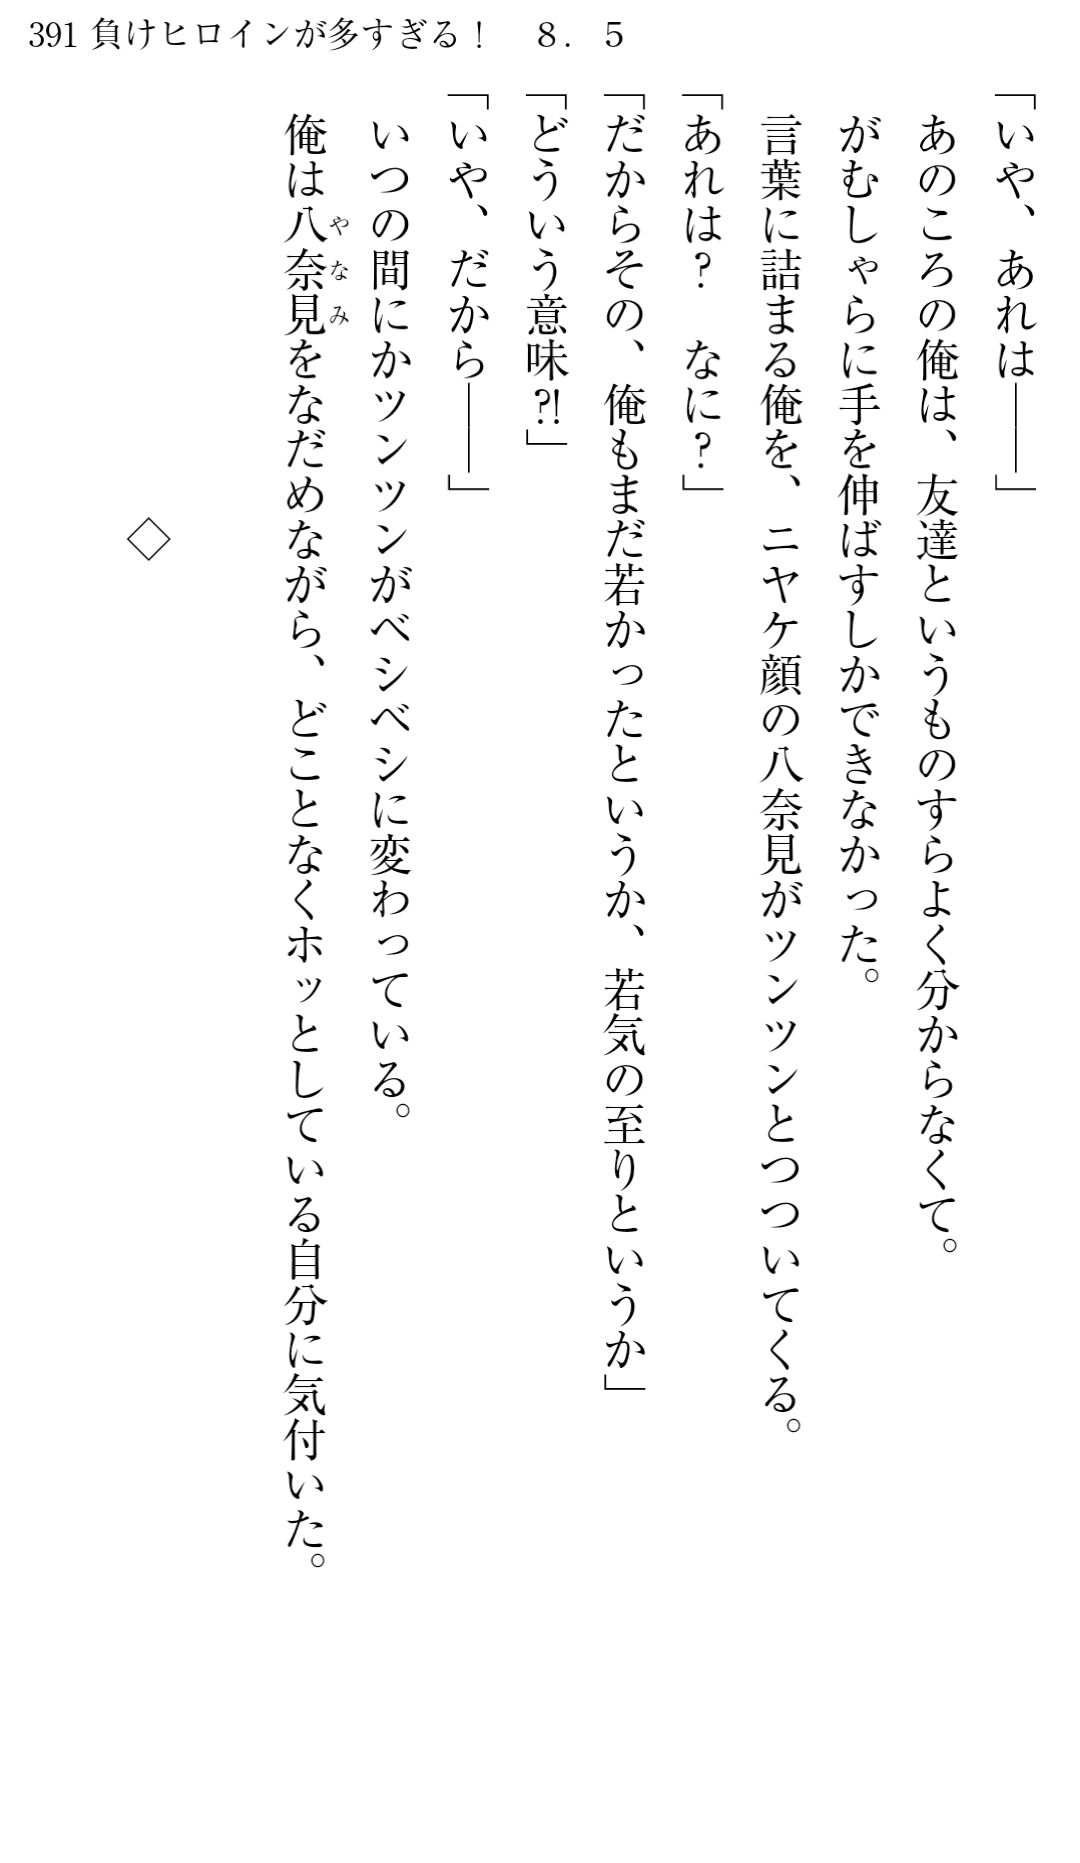 391 負けヒロインが多すぎる！　８．５
「いや、あれは――」
あのころの俺は、友達というものすらよく分からなくて。
がむしゃらに手を伸ばすしかできなかった。
言葉に詰まる俺を、ニヤケ顔の八奈見がツンツンとつついてくる。
「あれは？　なに？」
「だからその、俺もまだ若かったというか、若気の至りというか」
「どういう意味⁈」
「いや、だから――」
いつの間にかツンツンがベシベシに変わっている。
俺は八奈見やなみをなだめながら、どことなくホッとしている自分に気付いた。
◇